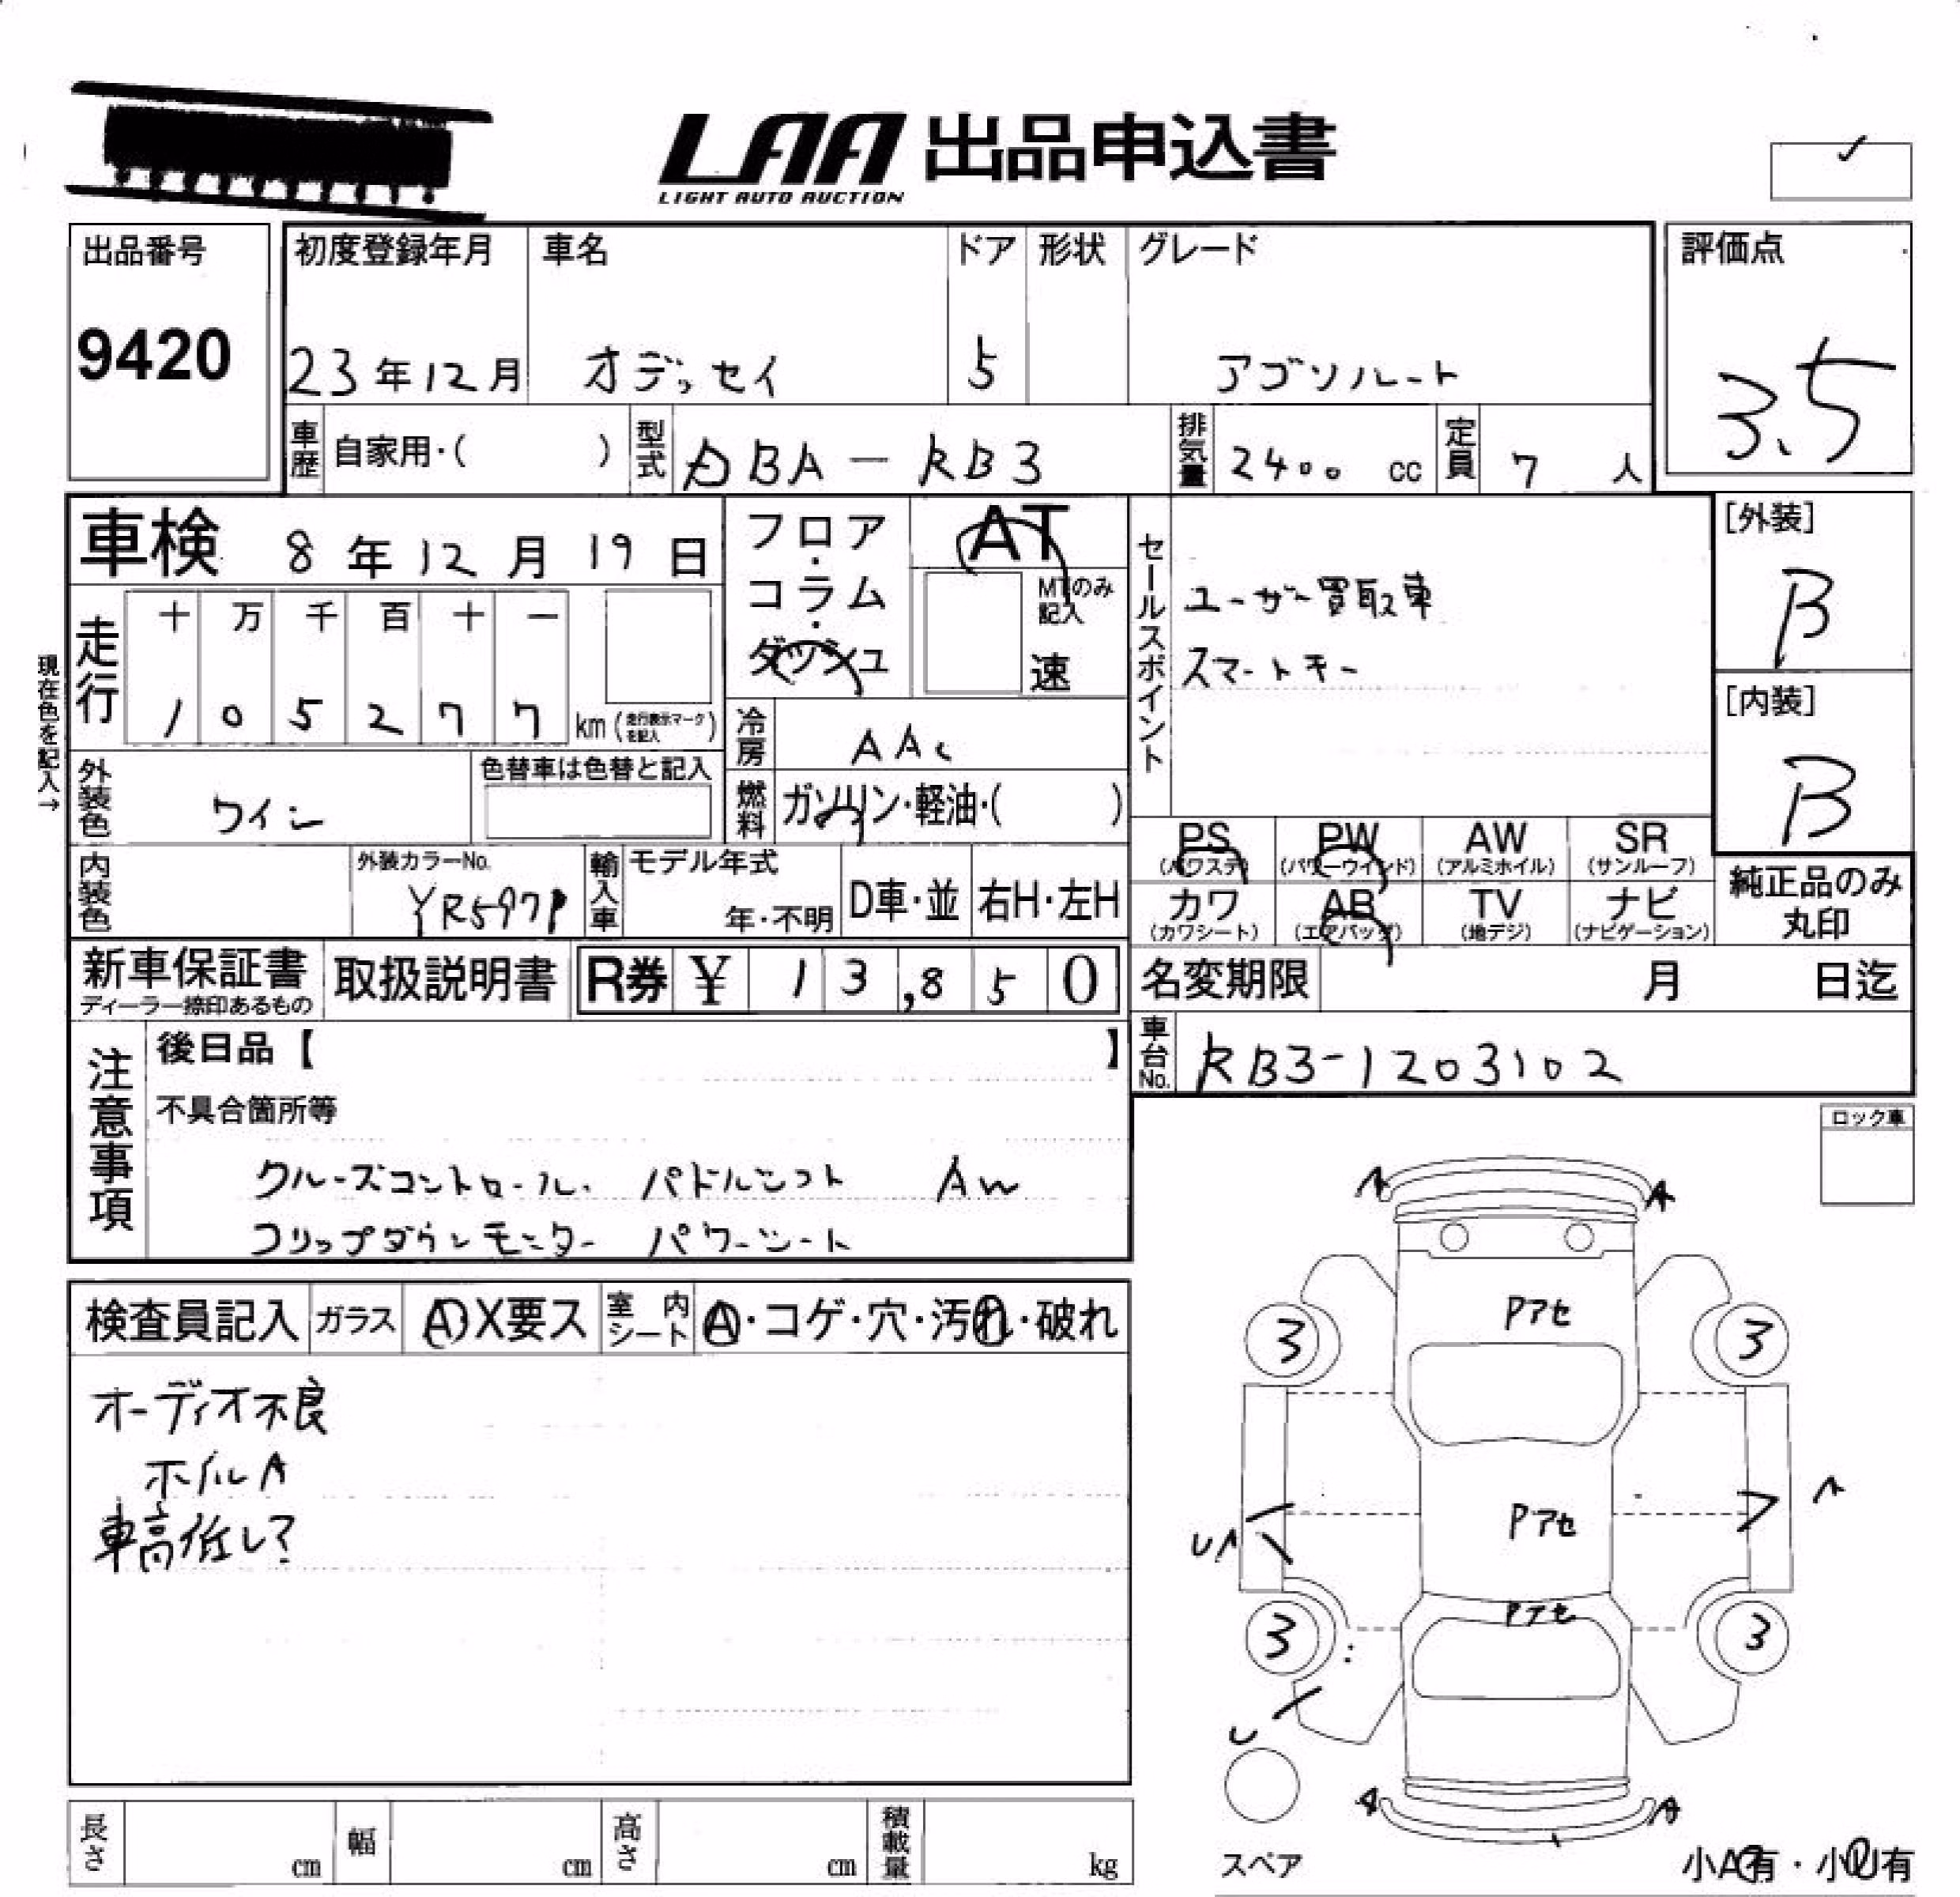 LAA 出品申込書
LIGHT AUTO AUCTION
出品番号
9420
初度登録年月 車名 ドア 形状 グレード
23年12月 オデッセイ 5 アブソルート
評価点
3.5
車歴 自家用・( ) 型式 DBA-RB3 排気量 2400 cc 定員 7 人
車検 8年12月19日
フロア・コラム・ダッシュ
AT
MTのみ記入
速
セールスポイント
ユーザー買取車
スマートキー
[外装]
B
[内装]
B
現在色を記入→
走行 十 万 千 百 十 一
1 0 5 2 7 7 km (走行表示マークを記入)
冷房 AAC
外装色 ワイン 色替車は色替と記入
燃料 ガソリン・軽油・( )
PS (パワステ) PW (パワーウィンド) AW (アルミホイル) SR (サンルーフ)
カワ (カワシート) AB (エアバッグ) TV (地デジ) ナビ (ナビゲーション)
純正品のみ丸印
内装色 外装カラーNo. YR597P 輸入車 モデル年式 年・不明 D車・並 右H・左H
新車保証書 ディーラー捺印あるもの 取扱説明書 R券 ¥ 13,850
名変期限 月 日迄
車台No. RB3-1203102
注意事項
後日品【 】
不具合箇所等
クルーズコントロール パドルシフト AW
フリップダウンモニター パワーシート
ロック車
検査員記入 ガラス A・X要ス 室内シート A・コゲ・穴・汚れ・破れ
オーディオ不良
ホイルA
車高低し?
A A
Pアセ
3 3
Pアセ
UA A
Pアセ
3 3
U
A A
スペア
小A有・小U有
長さ cm 幅 cm 高さ cm 積載量 kg